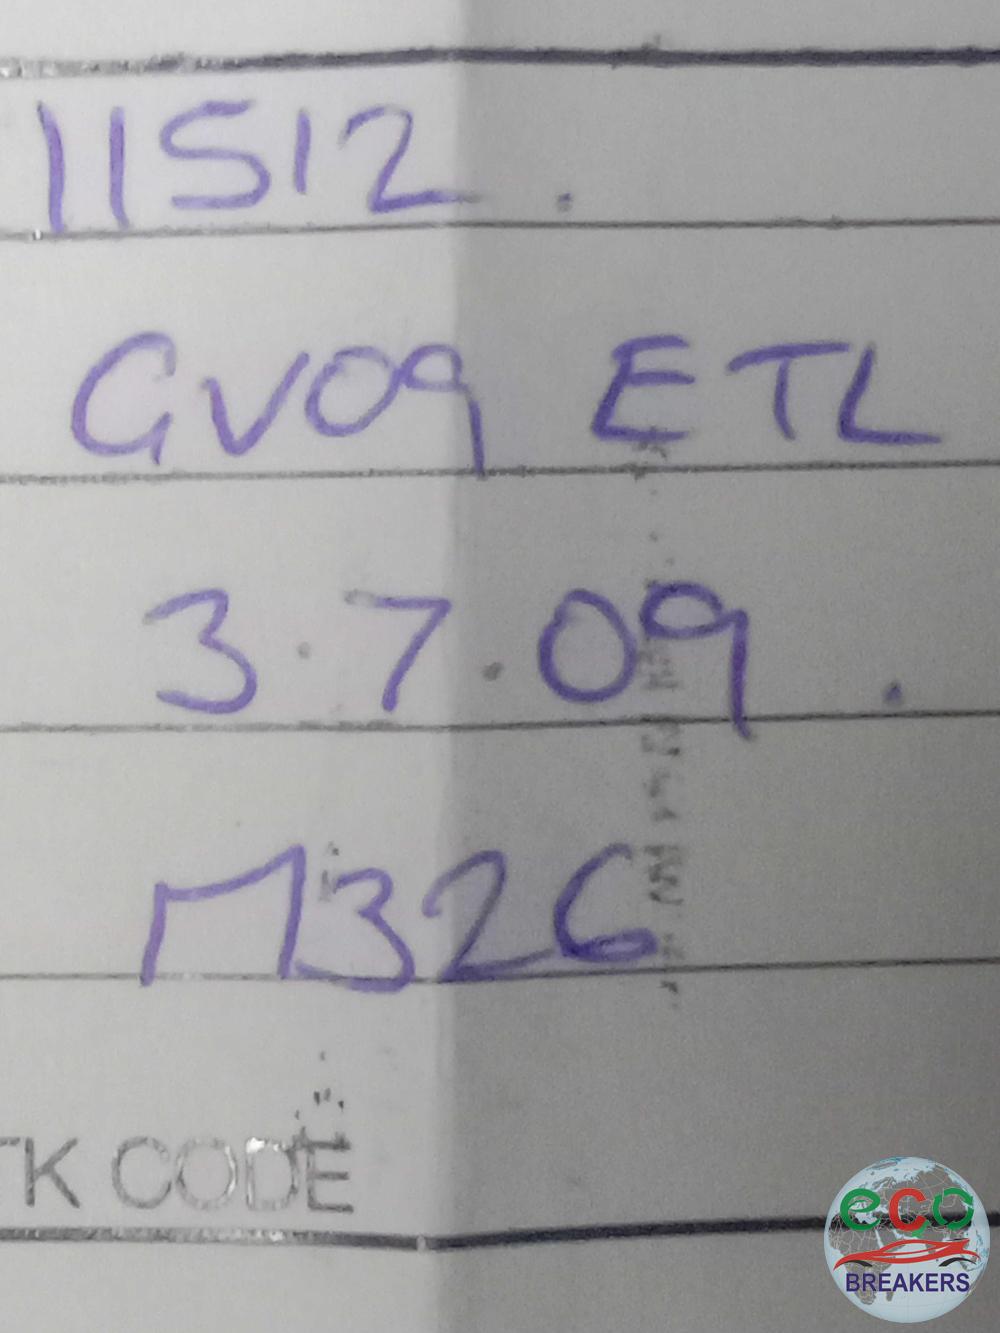 11512.
GV09 ETL
3.7.09.
M326
TK CODE
eco
BREAKERS